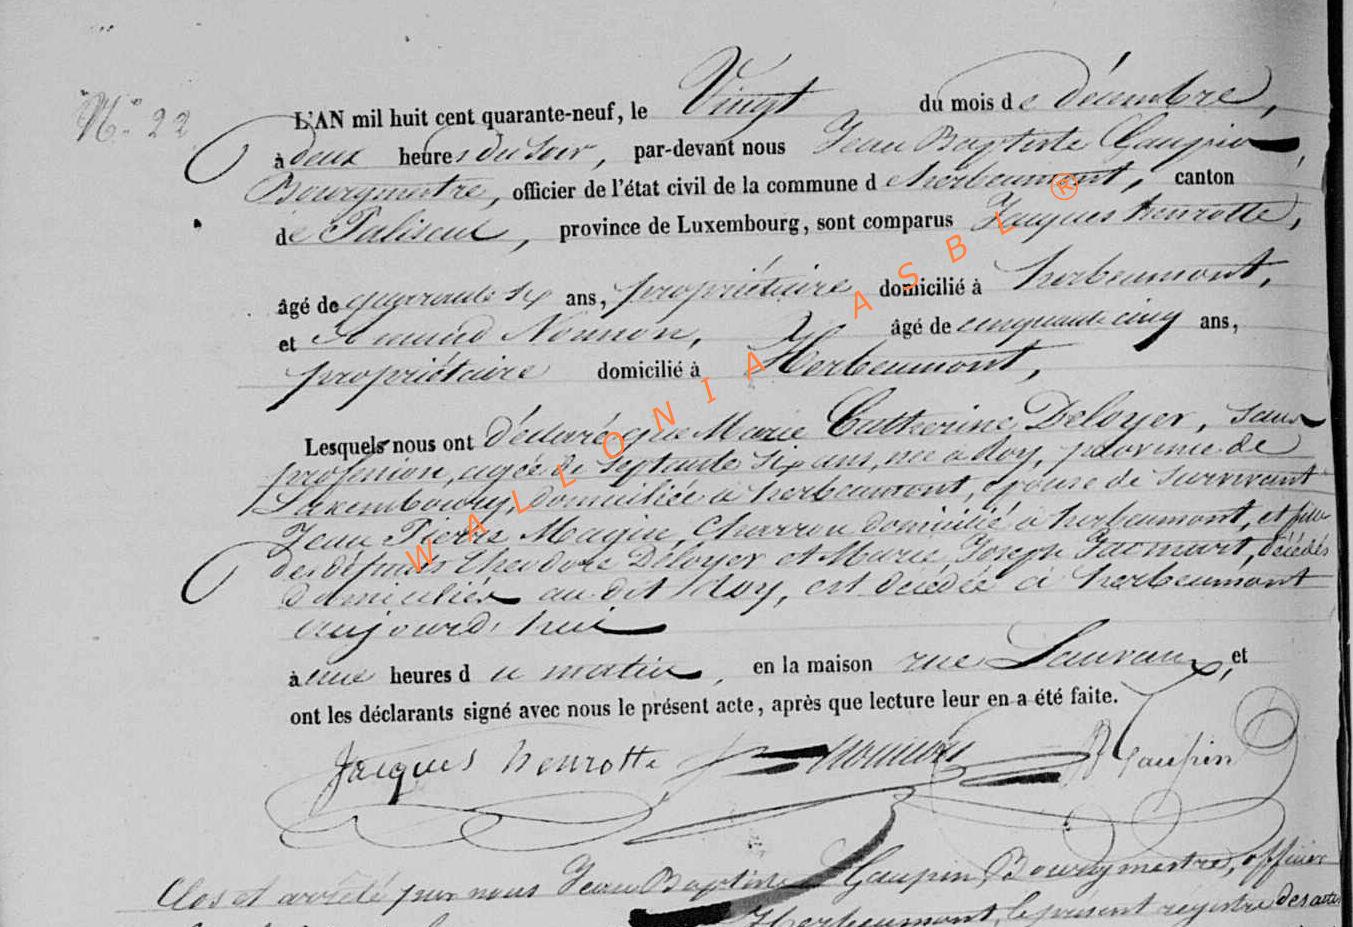 N.° 22
L'AN mil huit cent quarante-neuf, le Vingt du mois de décembre,
à deux heures du Soir, par-devant nous Jean Baptiste Gaupin
Bourgmestre, officier de l'état civil de la commune d'herbeumont, canton
de Paliseul, province de Luxembourg, sont comparus Jacques henrotte,
âgé de quarante six ans, propriétaire domicilié à herbeumont,
et Nonnon, âgé de cinquante cinq ans,
propriétaire domicilié à Herbeumont,
Lesquels nous ont déclaré que Marie Catherine Deloyer, sans
profession, agée de septante six ans, née a province de
Luxembourg, domiciliée a herbeumont, épouse de survivant
Jean Pierre Magin, Charron domicilié a herbeumont, et fille
des défunts théodore Deloyer et Marie Joseph Jacmart, décédés
domiciliés au dit est décédée à herbeumont
aujourd'hui
à une heures du matin, en la maison rue Lauvaux, et
ont les déclarants signé avec nous le présent acte, après que lecture leur en a été faite.
Jacques henrotte Nonnon JB Gaupin
Clos et arrêté par nous Jean Baptiste Gaupin, Bourgmestre, officier
Herbeumont, le présent régistre des actes
WALLONIA ASBL ®